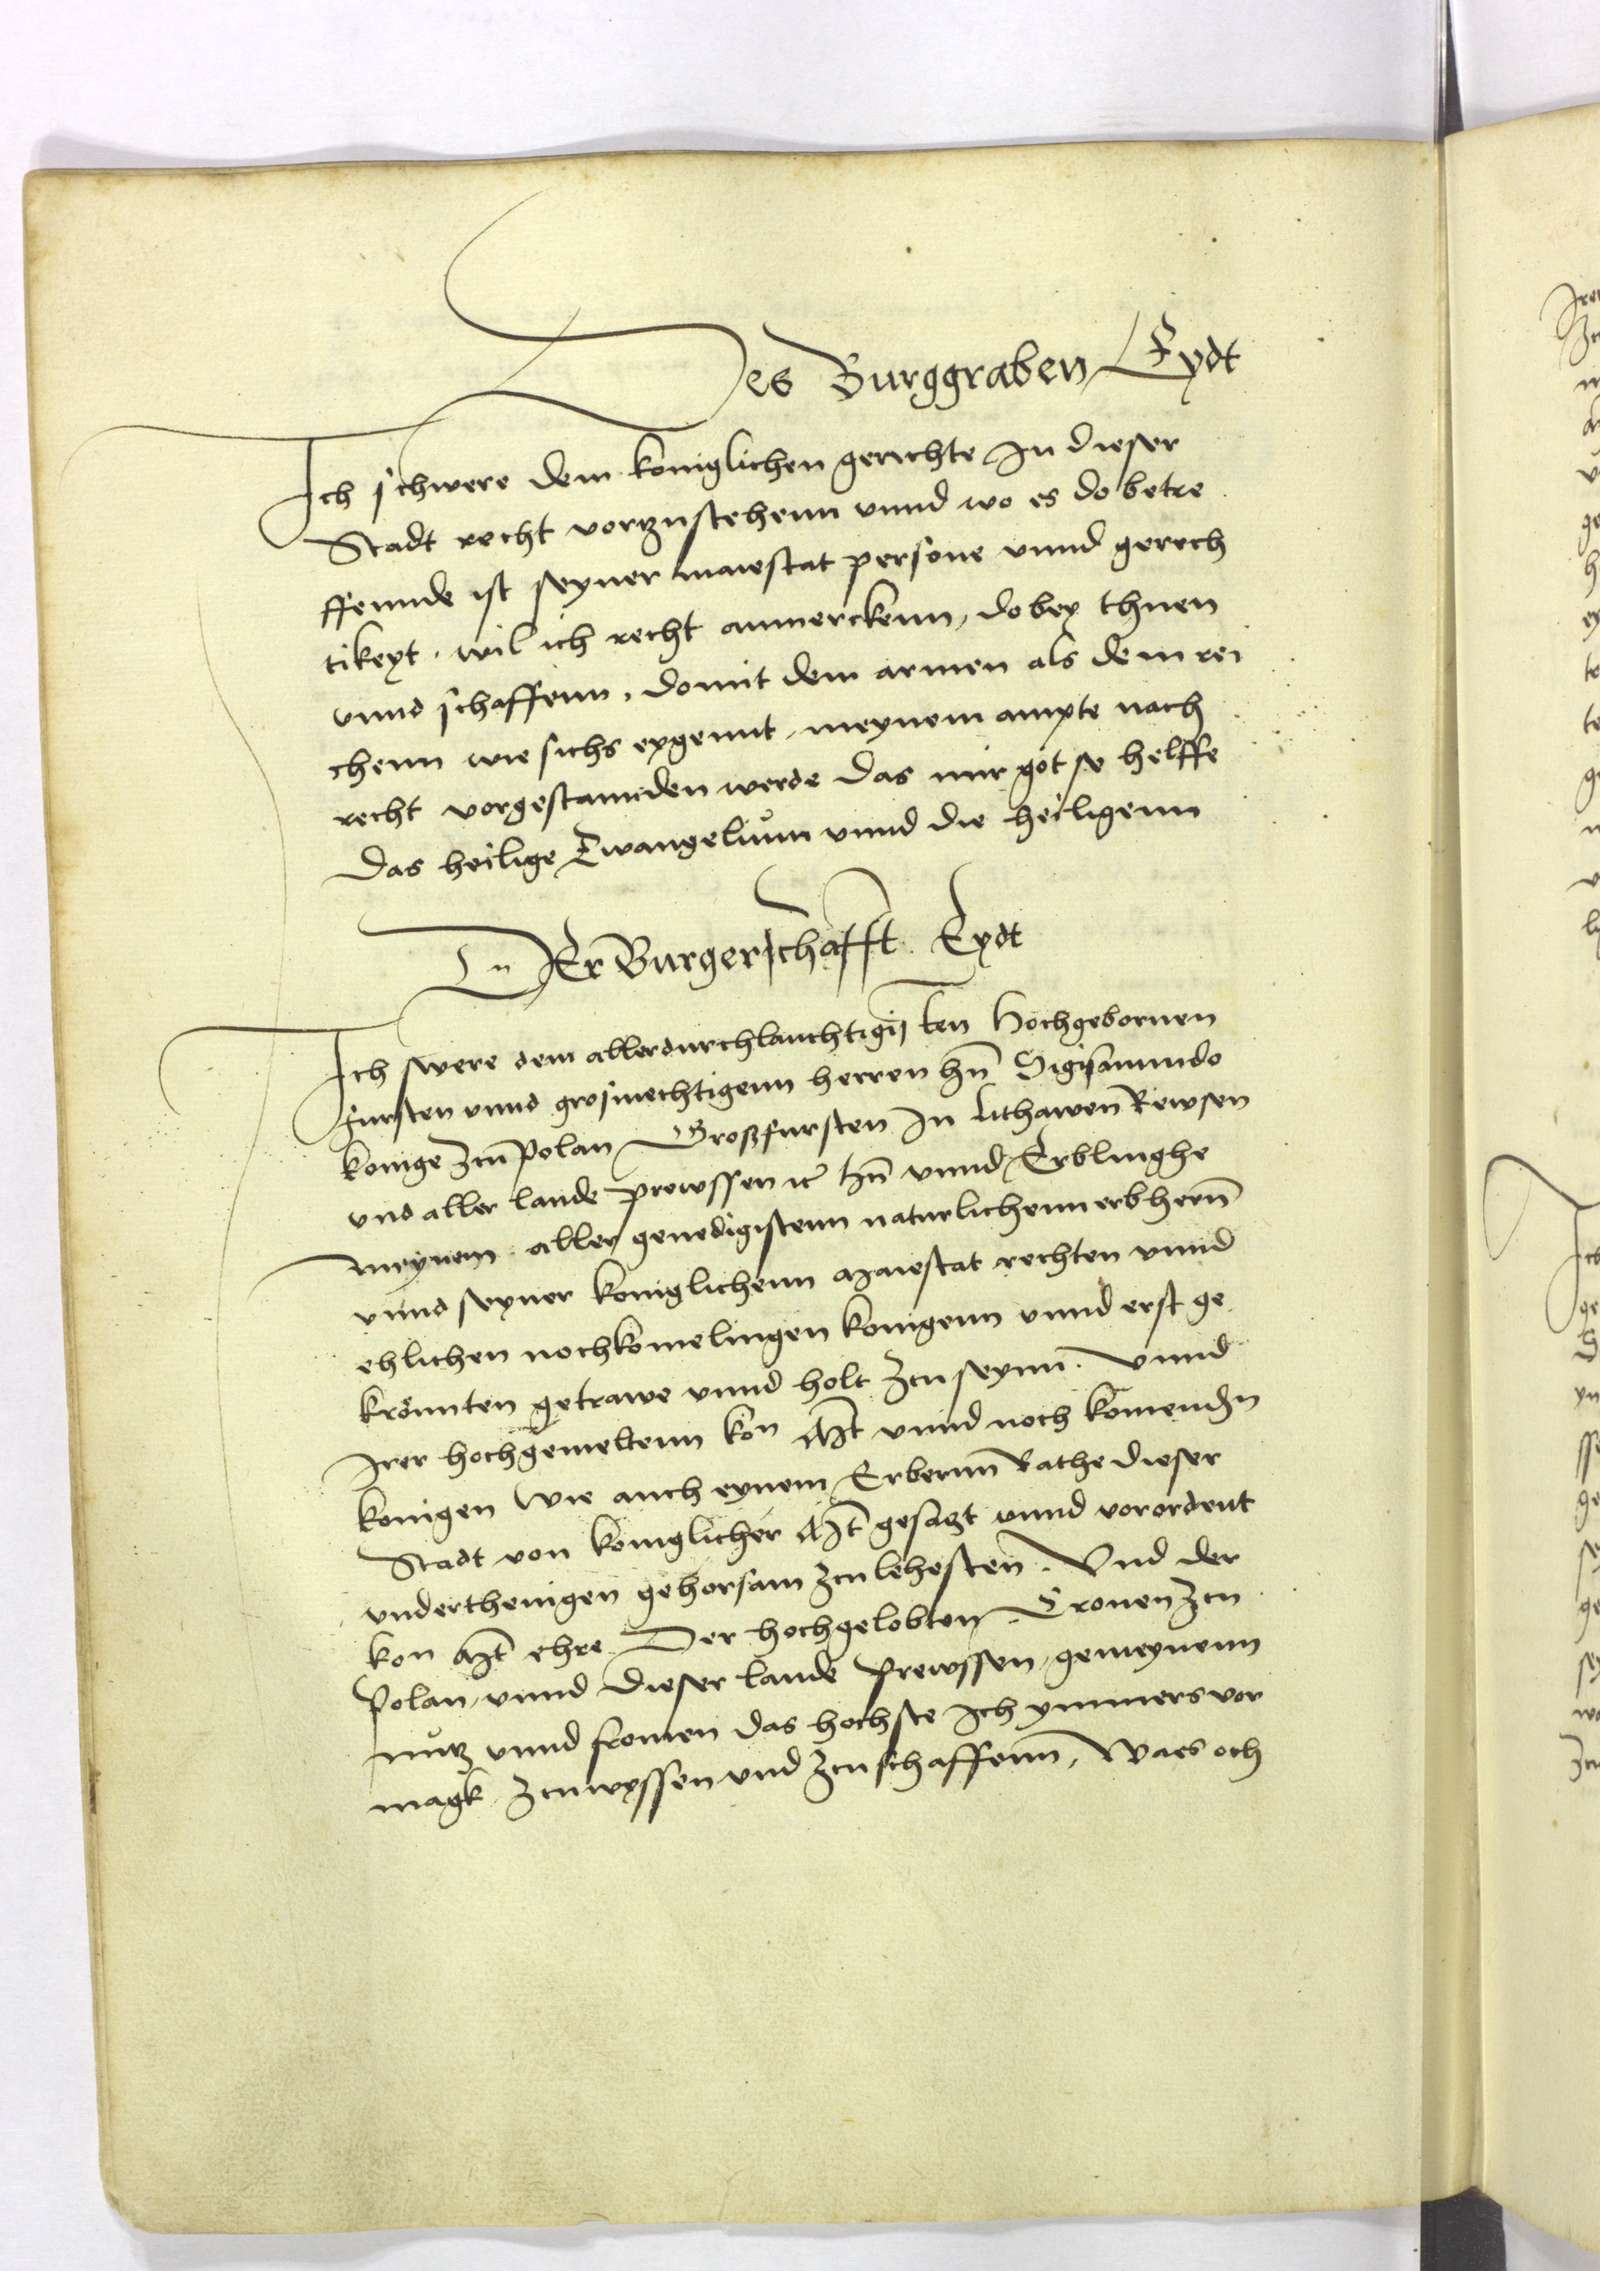 Des Burggraben Eydt
Ich schwere dem koniglichen gerichte In dieser
Stadt recht vortzustehenn vnnd wo es do betre
ffennde ist seyner maiestat persone vnnd gerech
tikeyt. wil ich recht anmerckenn, do bey thuen
vnnd schaffenn, domit dem armen als dem rei
chenn wie sichs eygennt, meynem ampte nach
recht vorgestannden werde das mir got so helffe
Das heilige Ewangelium vnnd die heiligenn
DEr Burgerschafft Eydt
Ich swere dem allerdurchlauchtigisten Hochgebornen
fursten vnnd grosmechtigenn herren hn̄ Sigismundo
konige Zcu polan Großfursten In Lithawen Rewsen
vnd aller lande prewssen ꝛc hn̄ vnnd Erblinghe
Meynem aller genedigistenn naturlichenn erbhern̄
vnnd seyner koniglichenn Maiestat rechten vnnd
ehlichen nochkomelingen konigenn vnnd erst ge
krönnten getrawe vnnd holt Zcu seynn̄. Vnnd
Irer hochgemeltenn kon Mt̄ vnnd noch komendn
konigen Wie auch eynem Erbernn̄ Rathe dieser
Stadt von koniglicher Mt̄ gesatzt vnnd vorordent
vnderthenigen gehorsam zcu lehesten̄. Vnd der
kon Mt̄ ehre Der hochgelobten Cronen Zcu
Polan, vnnd dieser lande Prewssen, gemeynenn
nutz vnnd fromen das hochste Ich ymmers vor
magk Zcu wyssen vnd Zcu schaffenn̄, Waes och